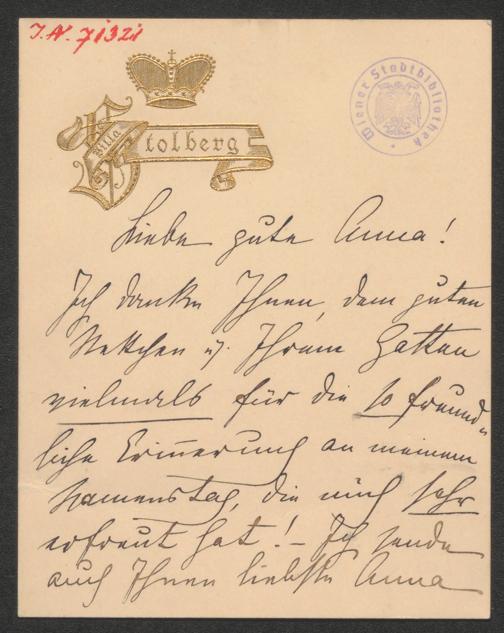 J.N. 71321
Wiener Stadtbibliothek
Villa
Stolberg
Liebe gute Anna!
Ich danke Ihnen, dem guten
Nettchen u. Ihrem Gatten
vielmals für die so freund-
liche Erinnerung an meinem
Namenstag, die mich sehr
erfreut hat! – Ich sende
auch Ihnen liebste Anna